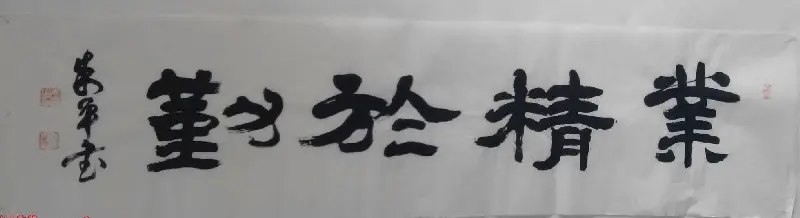 業精於勤
平書